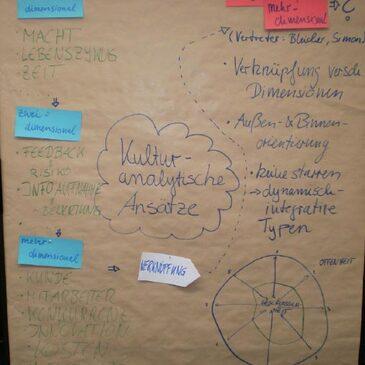 dimensional
MACHT
LEBENSZYKLUS
ZEIT
zwei-
dimensional
FEEDBACK
RISIKO
INFO AUFNAHME
& BEWERTUNG
mehr-
dimensional
KUNDE
MITARBEITER
KONKURRENZ
INNOVATION
KOSTEN
Kultur-
analytische
Ansätze
VERKNÜPFUNG
mehr-
dimensional
?
(Vertreter: Bleicher, Simon)
Verknüpfung versch.
Dimensionen
Außen- & Binnen-
orientierung
keine starren
→ dynamisch-
integrative
Typen
OFFENHEIT
GESCHLOSSEN
HEIT